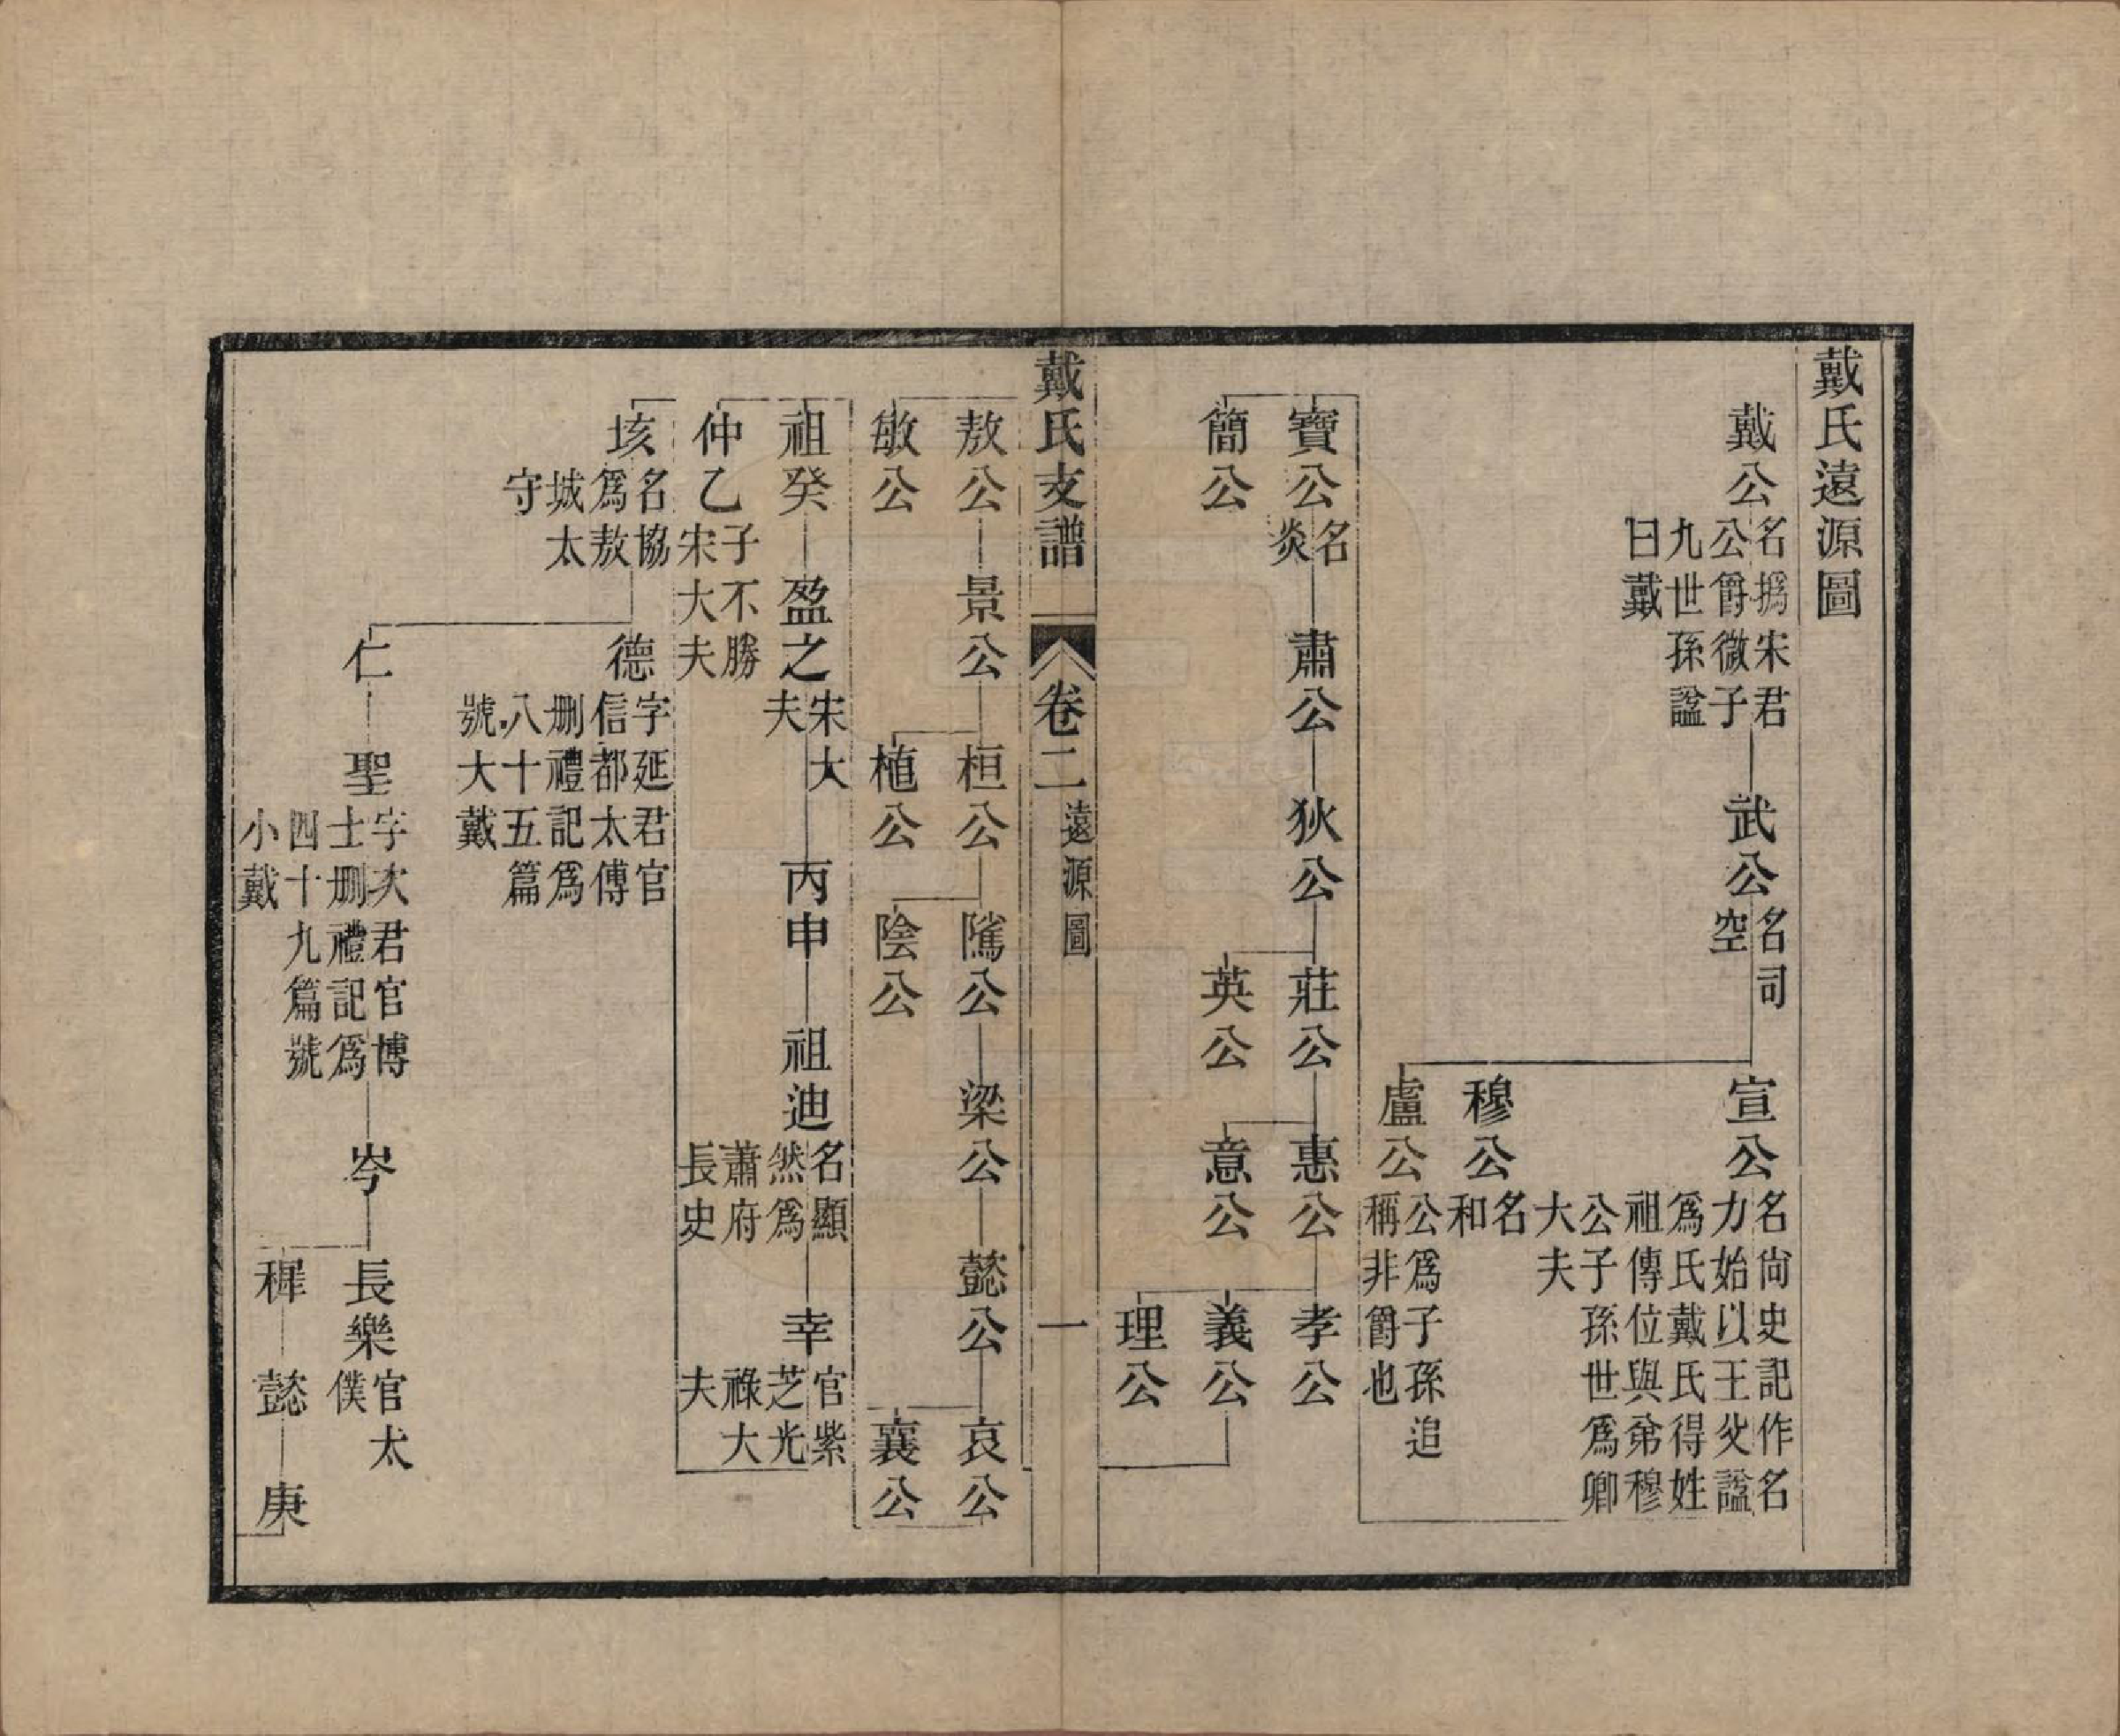 戴氏遠源圖
戴公
名撝宋君
公爵微子
九世孫諡
曰戴
武公
名司
空
宣公
名尙史記作名
力始以王父諡
爲氏戴氏得姓
祖傳位與弟穆
公子孫世爲卿
大夫
穆公
名
和
盧公
公爲子孫追
稱非爵也
寶公
名
炎
肅公
狄公
莊公
惠公
孝公
簡公
英公
意公
義公
理公
戴氏支譜
卷二
遠源圖
一
敖公
景公
桓公
隲公
梁公
懿公
哀公
敏公
植公
陰公
襄公
祖癸
盈之
宋大
夫
丙申
祖迪
名顯
然爲
蕭府
長史
幸
官紫
芝光
祿大
夫
仲乙
子不勝
宋大夫
垓
名協
爲敖
城太
守
德
字延君官
信都太傅
刪禮記爲
八十五篇
號大戴
仁
聖
字次君官博
士刪禮記爲
四十九篇號
小戴
岑
長樂
官太
僕
穉
懿
庚